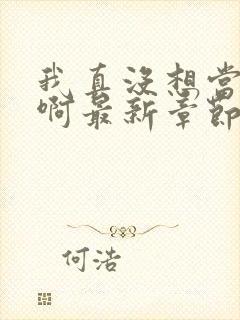 我真没想当
啊最新章节
何浩